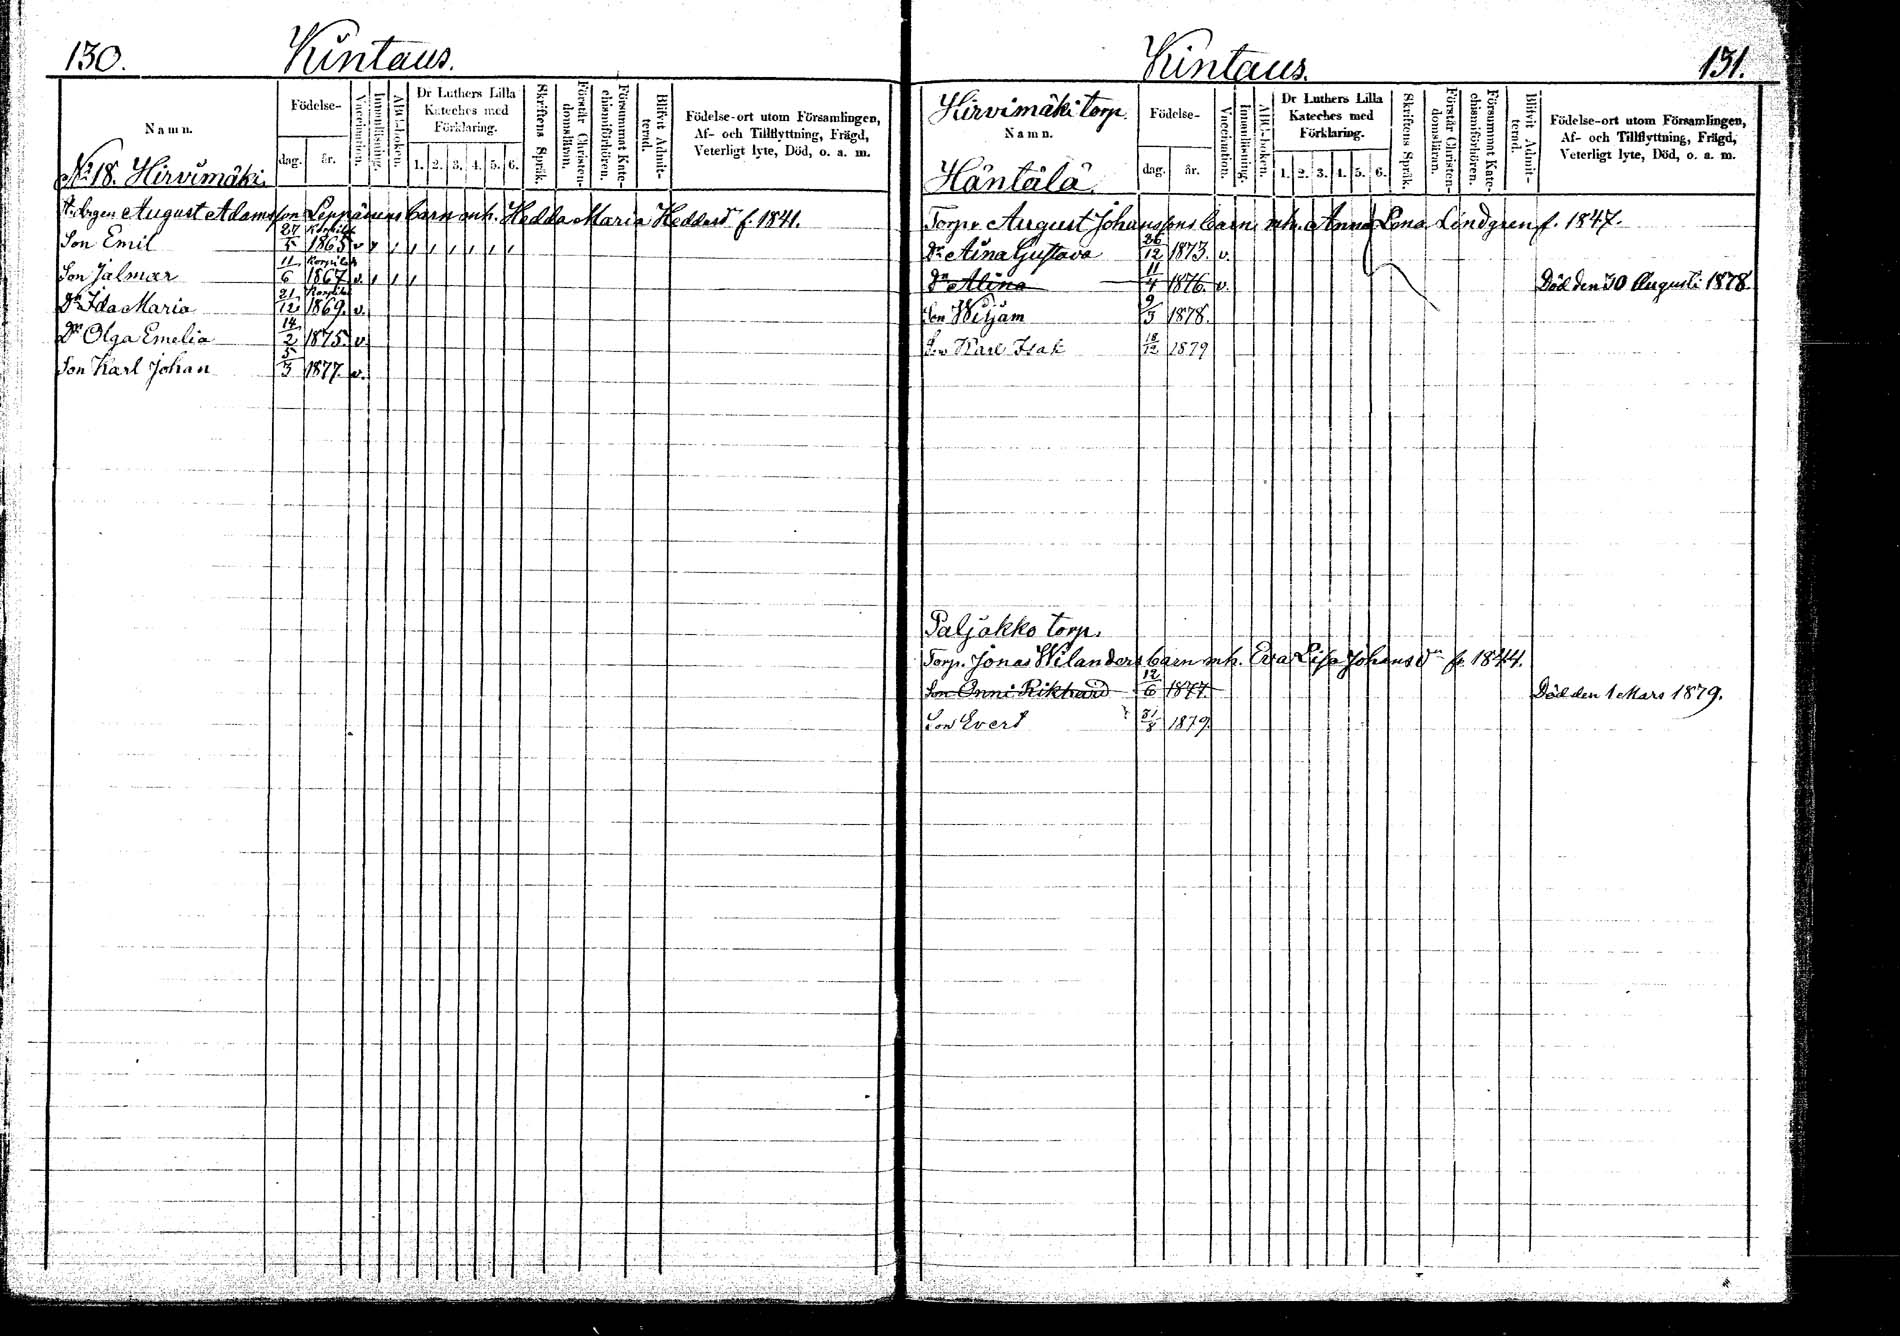 130. Kintaus.
Namn.
Födelse-
dag. år.
Vaccination.
Innanläsning.
ABC-boken.
Dr Luthers Lilla Kateches med Förklaring.
1. 2. 3. 4. 5. 6.
Skriftens Språk.
Förstår Christendomsläran.
Försummat Katechismiförhören.
Blifvit Admitterad.
Födelse-ort utom Församlingen, Af- och Tillflyttning, Frägd, Veterligt lyte, Död, o. a. m.
No 18. Hirvimäki.
August Adamsson Leppänens barn mh. Hedda Maria Hedlund f. 1841.
Son Emil 27/5 1865 v
Son Jalmar 11/6 1867 v.
Dr Ida Maria 21/12 1869. v.
Dr Olga Emelia 14/2 1875 v
Son Karl Johan 5/3 1877. v.
Kintaus. 131.
Hirvimäki torp.
Namn.
Födelse-
dag. år.
Vaccination.
Innanläsning.
ABC-boken.
Dr Luthers Lilla Kateches med Förklaring.
1. 2. 3. 4. 5. 6.
Skriftens Språk.
Förstår Christendomsläran.
Försummat Katechismiförhören.
Blifvit Admitterad.
Födelse-ort utom Församlingen, Af- och Tillflyttning, Frägd, Veterligt lyte, Död, o. a. m.
Häntälä
Torp. August Johanssons barn, mh. Anna Lena Lindgren f. 1847.
Dr Aina Gustava 26/12 1873. v.
Dr Alina 11/4 1876. v. Död den 30 Augusti 1878.
Son Wiljam 9/3 1878.
Son Karl Isak 18/12 1879
Paljakko torp.
Torp. Jonas Wilanders barn mh. Eva Lisa Johansdr f. 1844.
Son Onni Rikhard 12/6 1877 Död den 1 Mars 1879.
Son Evert 31/8 1879.